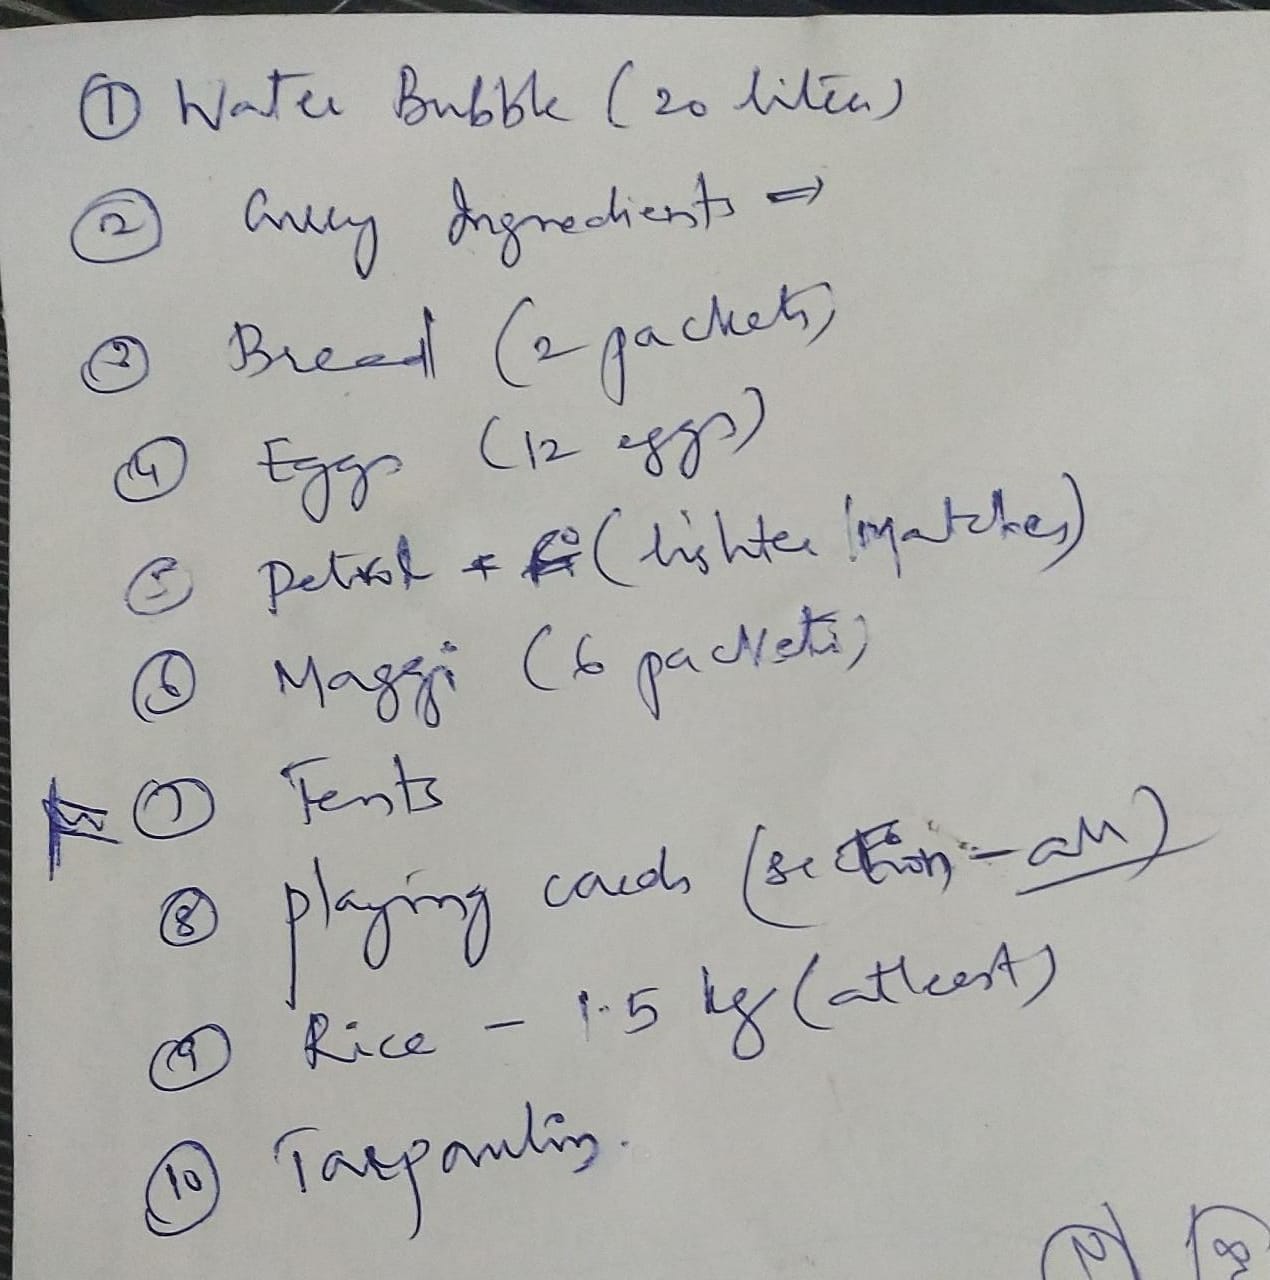 ① Water Bubble (20 liters)
② Curry Ingredients ⇒
③ Bread (2 packets)
④ Eggs (12 eggs)
⑤ Petrol + (lighter / matches)
⑥ Maggi (6 packets)
⑦ Tents
⑧ playing cards (section - all)
⑨ Rice - 1.5 kg (atleast)
⑩ Tarpaulin.
8